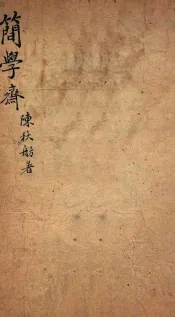 簡學齋
陳秋舫著